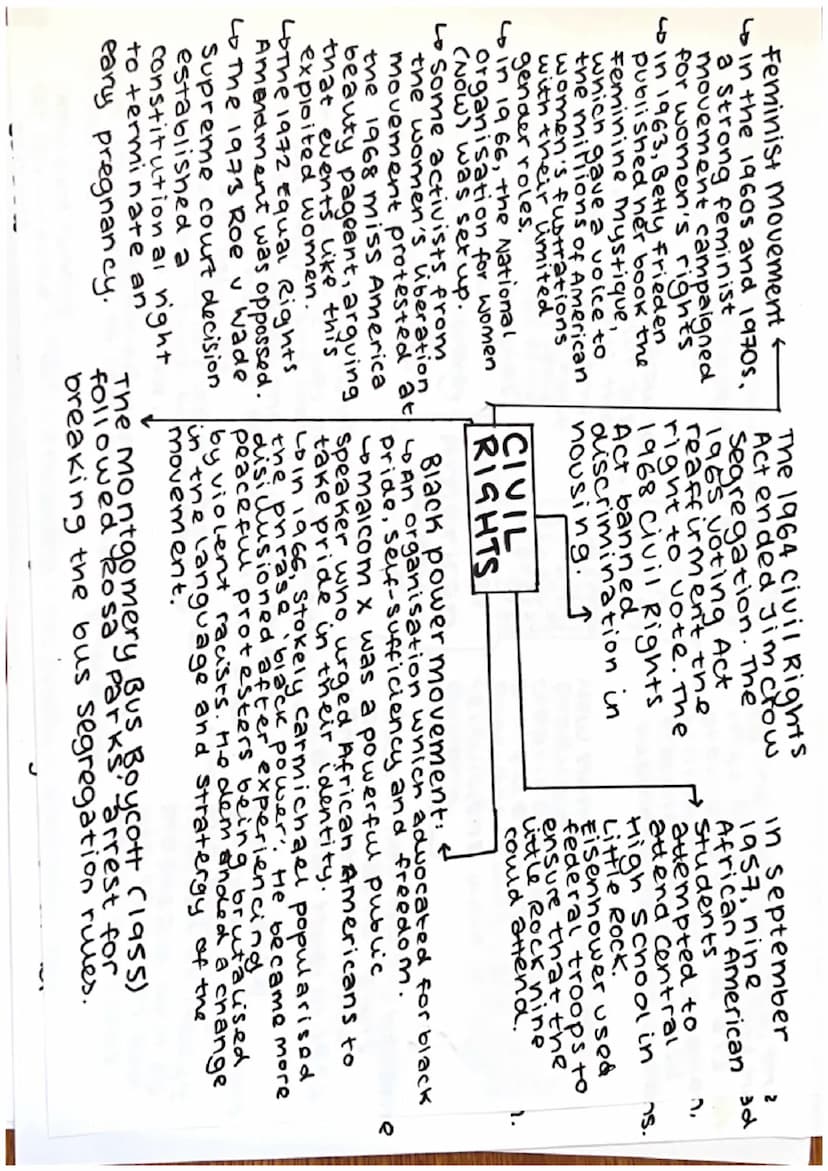 Feminist movement
↳ In the 1960s and 1970s,
a strong feminist
movement campaigned
for women's rights
↳ In 1963, Betty Frieden
published her book the
Feminine Mystique,
which gave a voice to
the millions of American
women's fustrations
with their limited
gender roles.
↳ In 1966, the National
organisation for women
(NOW) was set up.
↳ Some activists from
the women's liberation
movement protested at
the 1968 miss America
beauty pageant, arguing
that events like this
exploited women.
↳ The 1972 Equal Rights
Amendment was opposed.
↳ The 1973 Roe v Wade
supreme court decision
established a
constitutional right
to terminate an
early pregnancy.
The 1964 Civil Rights
Act ended Jim Crow
Segregation. The
1965 Voting Act
reaffirment the
right to vote. The
1968 Civil Rights
Act banned
discrimination in
housing.
In September
1957, nine
African American
students
attempted to
attend Central
High School in
Little Rock.
Eisenhower used
federal troops to
ensure that the
Little Rock nine
could attend.
CIVIL
RIGHTS
Black power movement:
↳ An organisation which advocated for black
pride, self-sufficiency and freedom.
↳ malcom x was a powerful public
speaker who urged African Americans to
take pride in their identity.
↳ In 1966, Stokely Carmichael popularised
the phrase 'black power'. He became more
disillusioned after experiencing
peaceful protesters being brutalised
by violent racists. He demanded a change
in the language and stratergy of the
movement.
The Montgomery Bus Boycott (1955)
followed Rosa Parks' arrest for
breaking the bus segregation rules.